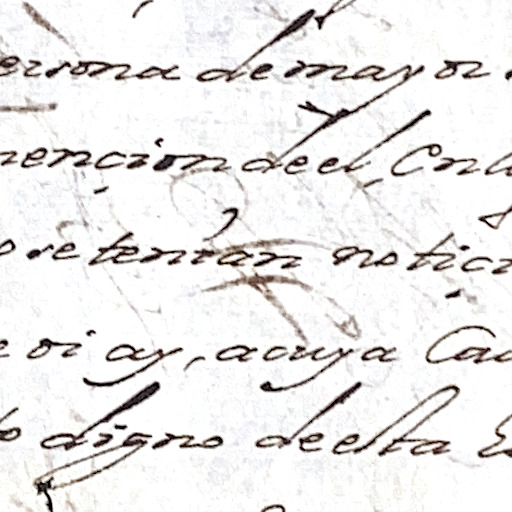 ersona de mayor
nencion de el, Enl
o se tenian notici
e oi ay, a cuya Cau
o digno de esta